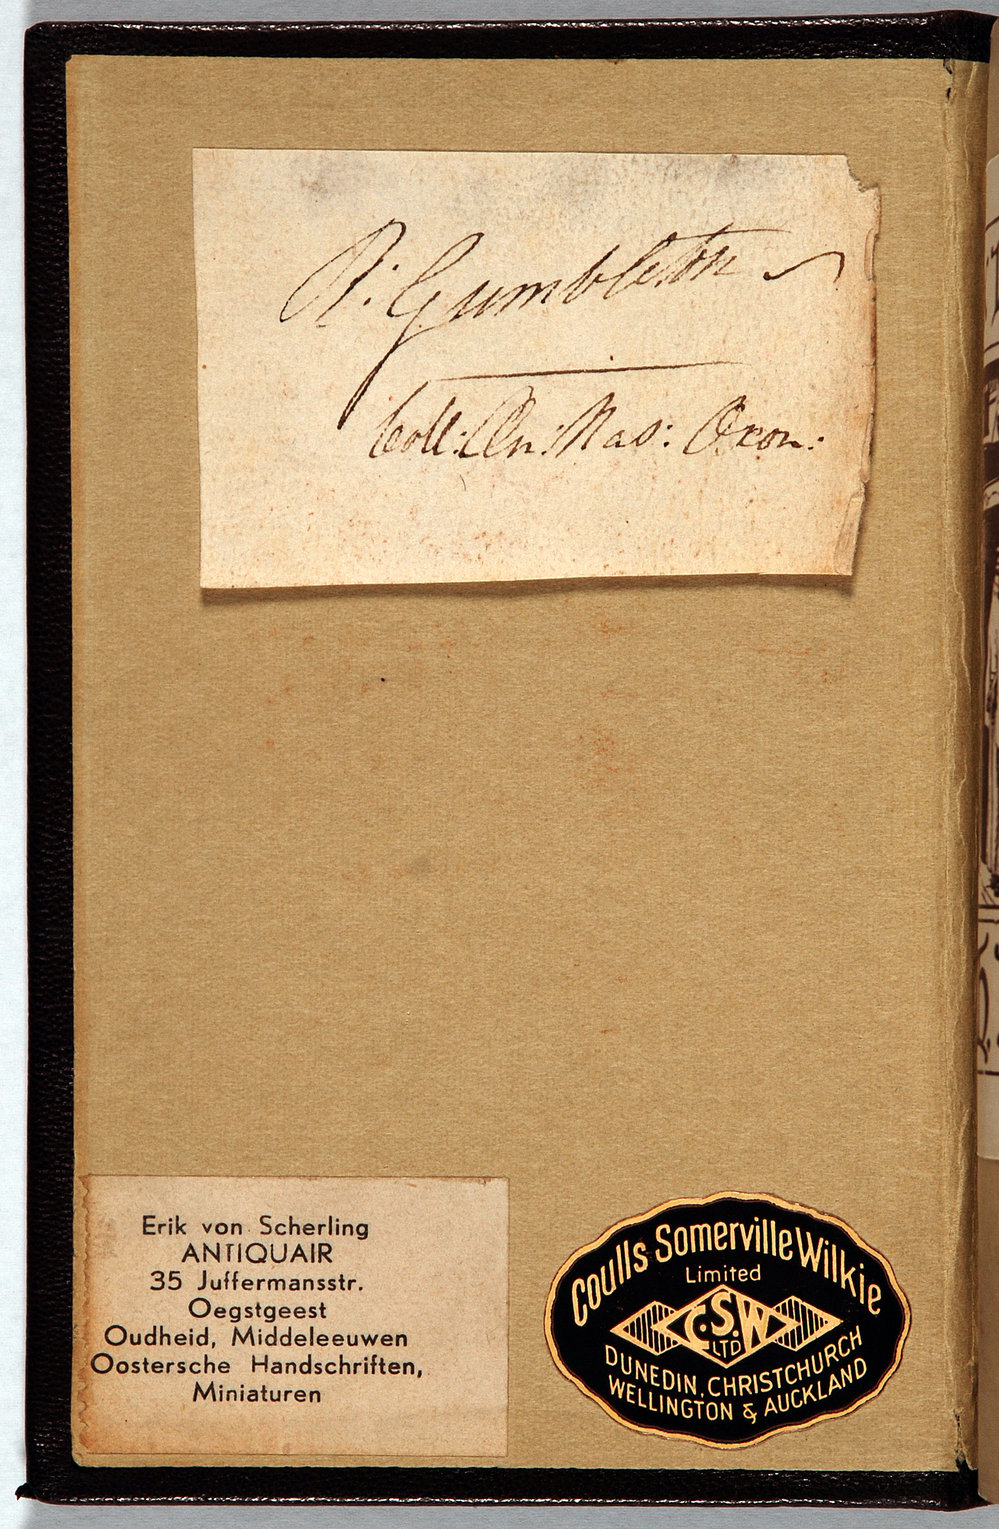 R: Gumbleton
Coll: Æn: Nas: Oxon:
Erik von Scherling
ANTIQUAIR
35 Juffermansstr.
Oegstgeest
Oudheid, Middeleeuwen
Oostersche Handschriften,
Miniaturen
Coulls Somerville Wilkie
Limited
C.S.W
LTD
DUNEDIN, CHRISTCHURCH
WELLINGTON & AUCKLAND